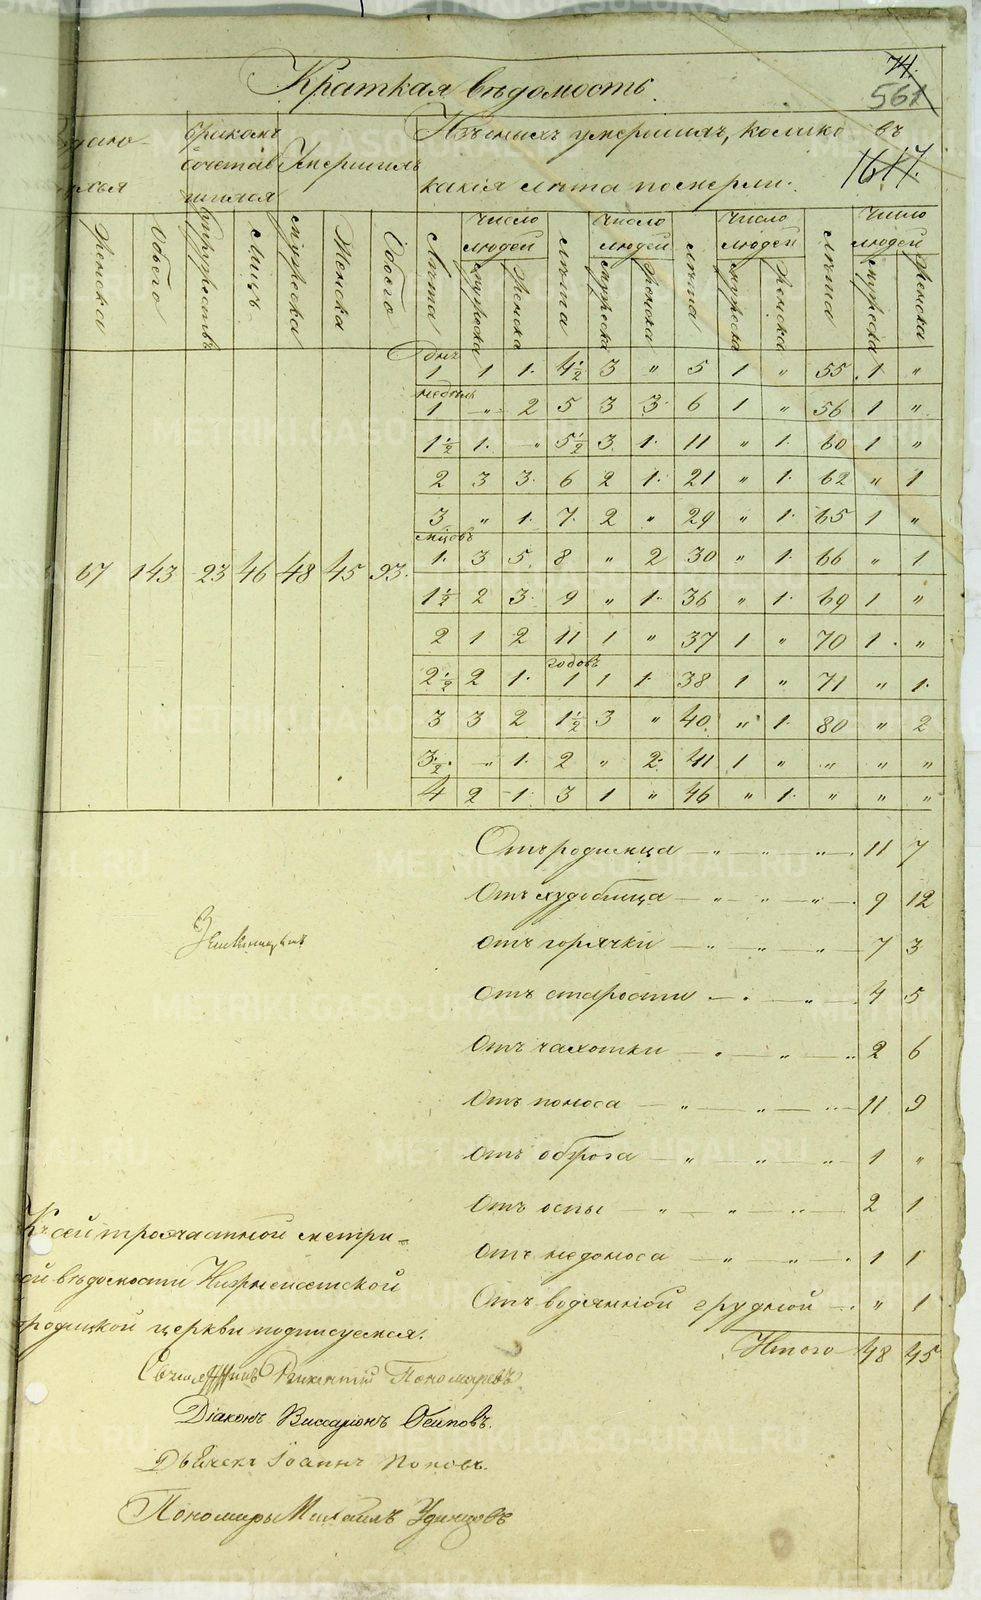 74.
561
Краткая вѣдомость.
1617.
бракомъ сочетавшихся
Умершихъ
Изъ оныхъ умершихъ, колико въ
какія лѣта померли:
Женска
Обоего
Бракосочет
Лицъ
Мужеска
Женска
Обоего
Лѣта
Число людей
Мужеска
Женска
Лѣта
Число людей
Мужеска
Женска
Лѣта
Число людей
Мужеска
Женска
Лѣта
Число людей
Мужеска
Женска
67 143 23 46 48 45 93.
День
1 1 1. 4½ 3 " 5 1 " 55 1 "
недѣль
1 " 2 5 3 3. 6 1 " 56 1 "
1½ 1. " 5½ 3. 1. 11 " 1. 60 1 "
2 3 3. 6 2 1. 21 " 1. 62 " 1
3 " 1. 7. 2 " 29 " 1. 65 1 "
мѣсяцовъ
1. 3 5. 8 " 2 30 " 1. 66 " 1
1½ 2 3. 9 " 1. 36 " 1. 69 1 "
2 1 2 11 1 " 37 1 " 70 1. "
годовъ
2½ 2 1. 1 1 1. 38 1 " 71 " 1.
3 3 2 1½ 3 " 40. " 1. 80 " 2
3½. " 1. 2 " 2. 41 1 " " " "
4 2 1. 3 1 " 46 " 1. " " "
Отъ родимца 11 7
Отъ худобища 9 12
Отъ горячки 7 3
Отъ старости 4 5
Отъ чахотки 2 6
Отъ поноса 11 9
Отъ оброга 1 "
Отъ оспы 2 1
Отъ недоноса 1 1
Отъ водянной грудной " 1
Итого 48 45
Къ сей троечастной метри-
ой вѣдомости Нижнеисетской
родицкой церкви подписуемся:
Священникъ Викентій Пономаревъ
Діаконъ Виссаріонъ Осиповъ.
Дьячекъ Іоаннъ Поповъ.
Пономарь Михаилъ Удинцовъ